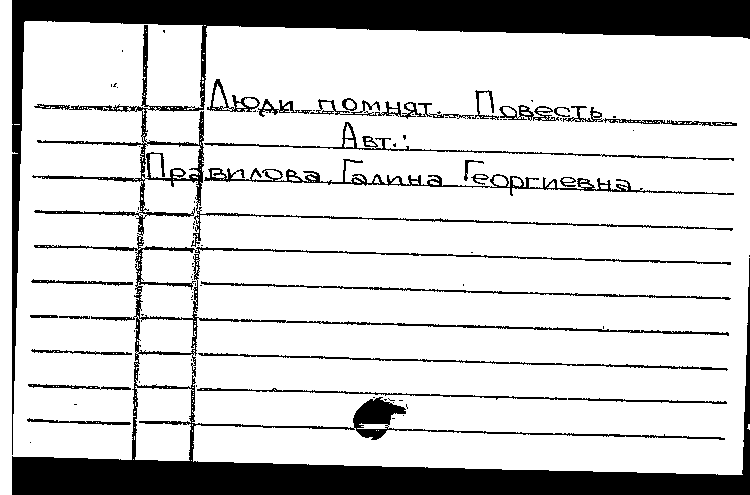 Люди помнят. Повесть.
Авт.:
Правилова, Галина Георгиевна.